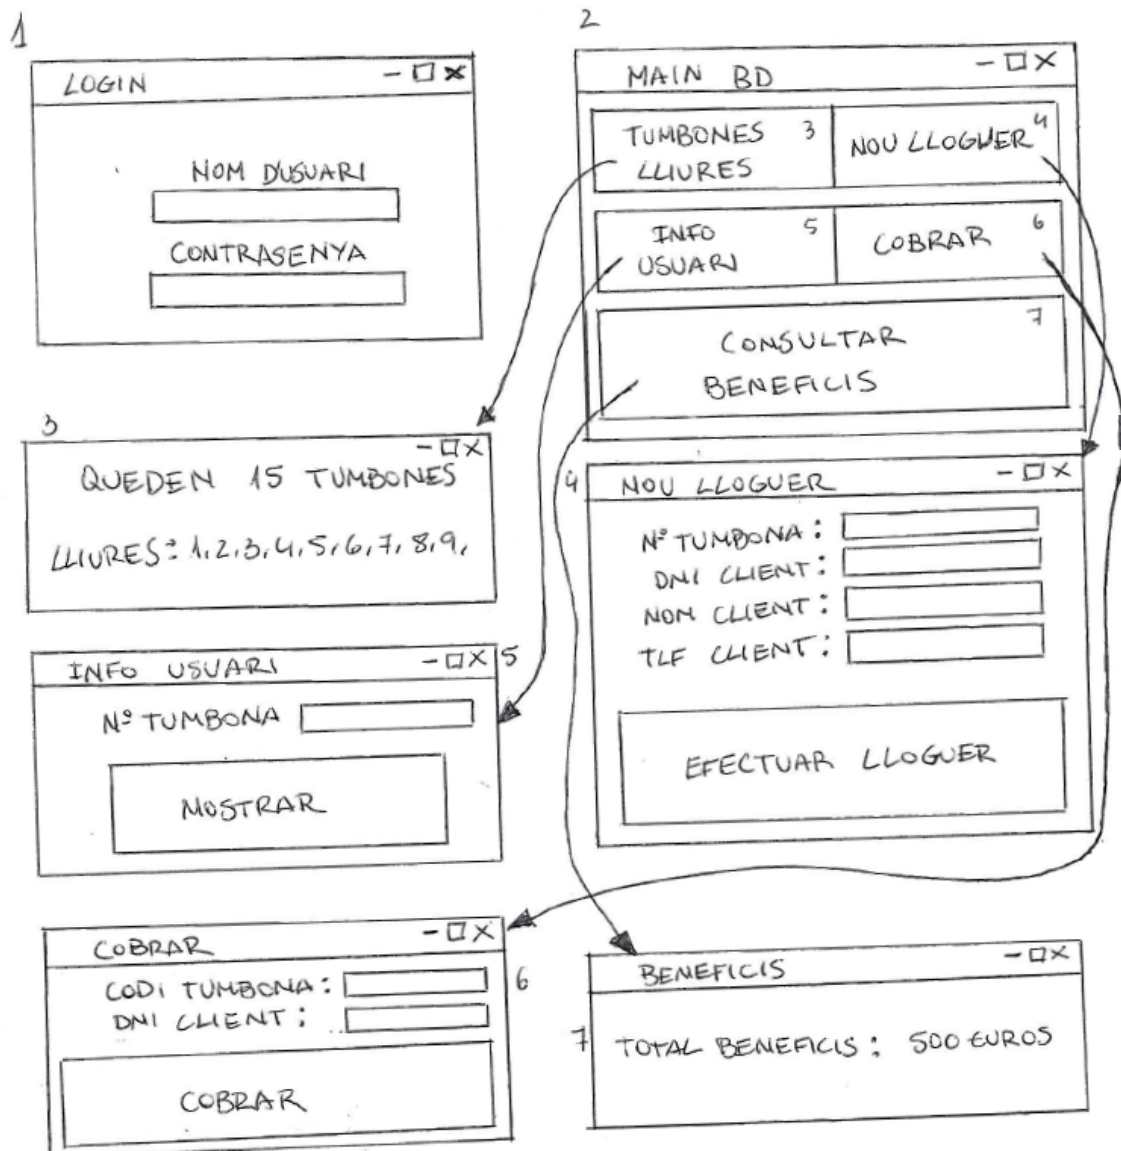 1
LOGIN
NOM D'USUARI
CONTRASENYA
2
MAIN BD
TUMBONES 3
LLIURES
NOU LLOGUER 4
INFO 5
USUARI
COBRAR 6
7
CONSULTAR
BENEFICIS
3
QUEDEN 15 TUMBONES
LLIURES: 1,2,3,4,5,6,7,8,9,
4
NOU LLOGUER
Nº TUMBONA:
DNI CLIENT:
NOM CLIENT:
TLF CLIENT:
EFECTUAR LLOGUER
INFO USUARI 5
Nº TUMBONA
MOSTRAR
COBRAR
CODI TUMBONA: 6
DNI CLIENT:
COBRAR
BENEFICIS
7
TOTAL BENEFICIS: 500 EUROS